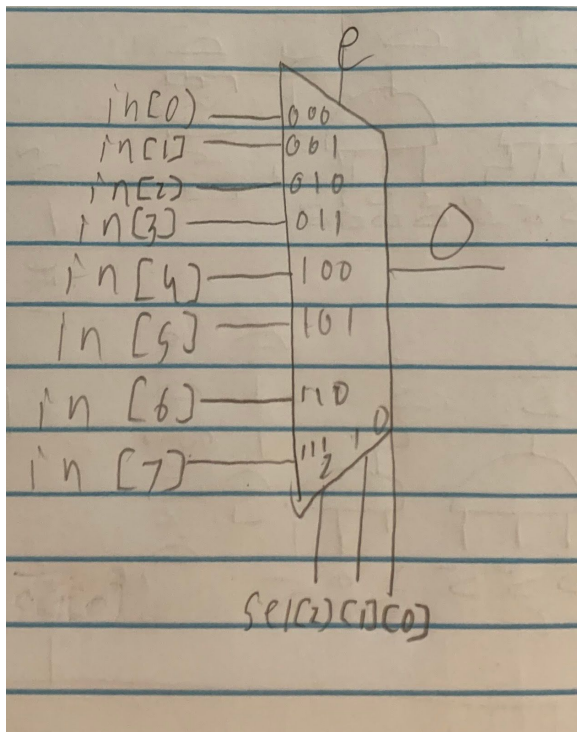 e
in[0] 000
in[1] 001
in[2] 010
in[3] 011
O
in[4] 100
in[5] 101
in[6] 110
in[7] 111
2 1 0
sel[2] [1] [0]